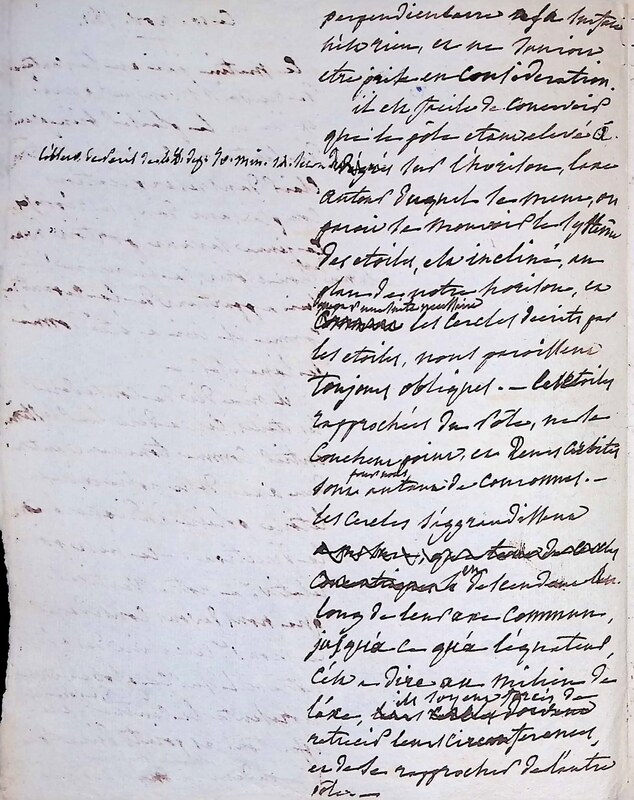 perpendiculaire a sa surface
n'est rien, et ne sauroit
etre prise en consideration.
il est facile de concevoir
que le pôle etant elevé à
degrés sur l'horison, l'axe
autour duquel se meuvent, ou
paroit se mouvoir le système
des etoiles, est incliné, au
plan de notre horison, et
par une suite necessaire
les cercles decrits par
les etoiles, nous paroissent
toujours obliques. — les etoiles
rapprochées du Pole, ne se
couchent point, et leurs orbites
pour nous
sont autant de couronnes. —
les cercles s'aggrandissent
en descendant le
long de leur axe commun,
jusqu'à ce qu'à l'équateur,
c'est a dire au milieu de
l'axe, ils soyent forcés de
retrecir leurs circonferences,
et de se rapprocher de l'autre
pôle. —